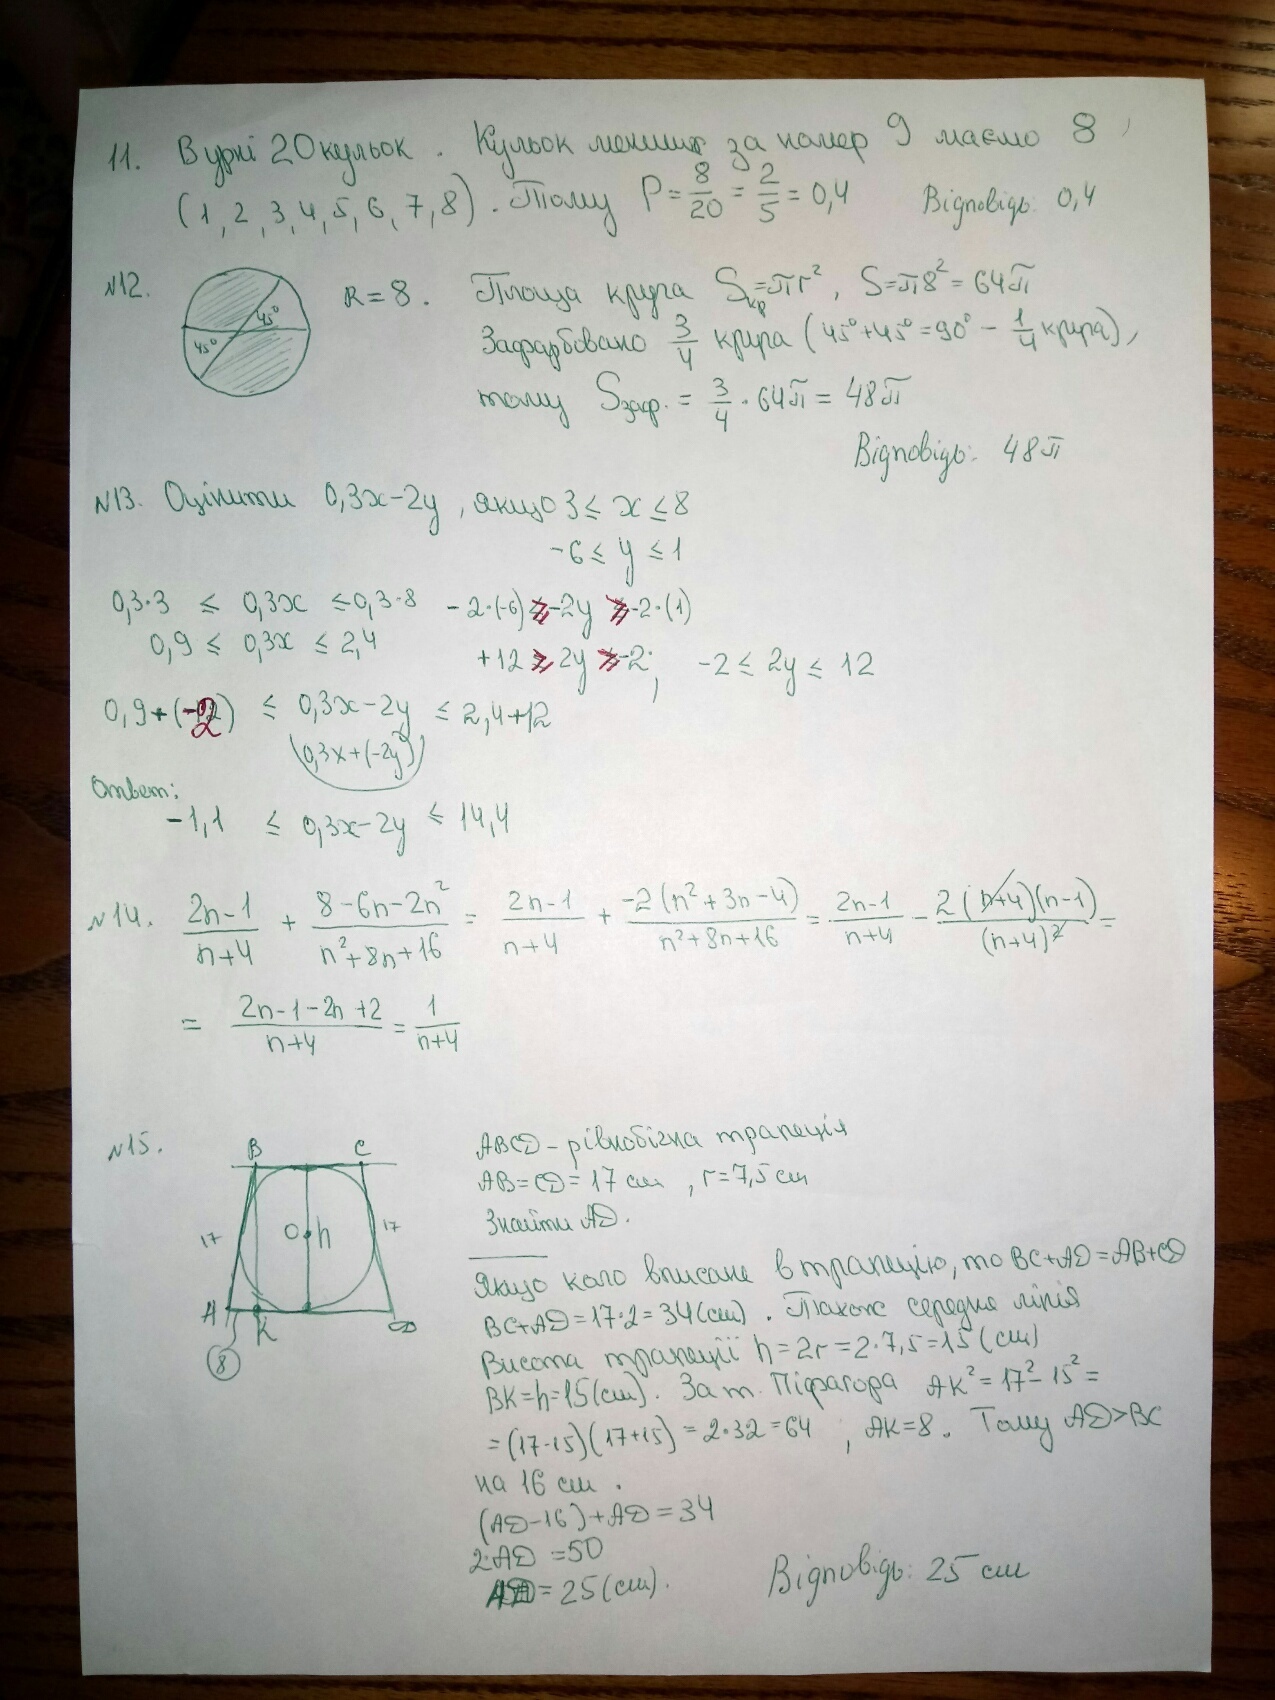 11. В урні 20 кульок. Кульок менших за номер 9 маємо 8
(1, 2, 3, 4, 5, 6, 7, 8). Тому P = 8/20 = 2/5 = 0,4 Відповідь: 0,4
№12. 45° 45° R = 8. Площа круга Sкр = πr², S = π8² = 64π
Зафарбовано 3/4 круга (45° + 45° = 90° - 1/4 круга),
тому Sзаф. = 3/4 · 64π = 48π
Відповідь: 48π
№13. Оцінити 0,3x - 2y, якщо 3 ≤ x ≤ 8
-6 ≤ y ≤ 1
0,3·3 ≤ 0,3x ≤ 0,3·8 -2·(-6) ≥ -2y ≥ -2·(1)
0,9 ≤ 0,3x ≤ 2,4 +12 ≥ 2y ≥ -2; -2 ≤ 2y ≤ 12
0,9 + (-2) ≤ 0,3x - 2y ≤ 2,4 + 12
(0,3x + (-2y))
Ответ:
-1,1 ≤ 0,3x - 2y ≤ 14,4
№14. (2n-1)/(n+4) + (8-6n-2n²)/(n²+8n+16) = (2n-1)/(n+4) + (-2(n²+3n-4))/(n²+8n+16) = (2n-1)/(n+4) - (2(n+4)(n-1))/((n+4)²) =
= (2n-1-2n+2)/(n+4) = 1/(n+4)
№15.
B C
17 O h 17
A K D
8
ABCD - рівнобічна трапеція
AB = CD = 17 см, r = 7,5 см
Знайти AD.
Якщо коло вписане в трапецію, то BC + AD = AB + CD
BC + AD = 17·2 = 34 (см). Також середня лінія
Висота трапеції h = 2r = 2·7,5 = 15 (см)
BK = h = 15 (см). За т. Піфагора AK² = 17² - 15² =
= (17-15)(17+15) = 2·32 = 64, AK = 8. Тому AD > BC
на 16 см.
(AD - 16) + AD = 34
2·AD = 50
AD = 25 (см). Відповідь: 25 см